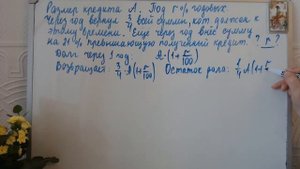 Размер кредита A. Под r% годовых.
Через год вернул 3/4 всей суммы, кот. должен к
этому времени. Еще через год внес сумму
на 21% превышающую полученный кредит. ? r ?
Долг через 1 год. A·(1+r/100)
Возвращает 3/4·A(1+r/100) Остаток долга: 1/4 A(1+r